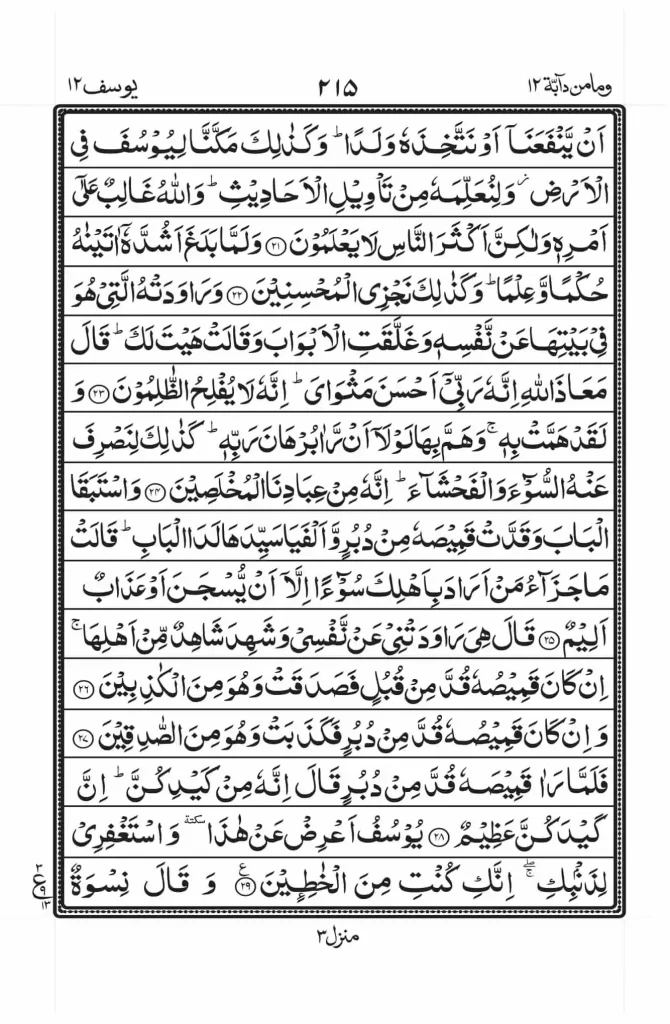 ومامن دآبّة ١٢ ٢١٥ يوسف ١٢
اَنْ يَّنْفَعَنَاۤ اَوْ نَتَّخِذَهٗ وَلَدًا ؕ وَكَذٰلِكَ مَكَّنَّا لِيُوْسُفَ فِى
الْاَرْضِ ؗ وَلِنُعَلِّمَهٗ مِنْ تَاْوِيْلِ الْاَحَادِيْثِ ؕ وَاللّٰهُ غَالِبٌ عَلٰٓى
اَمْرِهٖ وَلٰكِنَّ اَكْثَرَ النَّاسِ لَا يَعْلَمُوْنَ ۝٢١ وَلَمَّا بَلَغَ اَشُدَّهٗۤ اٰتَيْنٰهُ
حُكْمًا وَّعِلْمًا ؕ وَكَذٰلِكَ نَجْزِى الْمُحْسِنِيْنَ ۝٢٢ وَرَاوَدَتْهُ الَّتِىْ هُوَ
فِىْ بَيْتِهَا عَنْ نَّفْسِهٖ وَغَلَّقَتِ الْاَبْوَابَ وَقَالَتْ هَيْتَ لَكَ ؕ قَالَ
مَعَاذَ اللّٰهِ اِنَّهٗ رَبِّىْۤ اَحْسَنَ مَثْوَاىَ ؕ اِنَّهٗ لَا يُفْلِحُ الظّٰلِمُوْنَ ۝٢٣ وَ
لَقَدْ هَمَّتْ بِهٖ ۚ وَهَمَّ بِهَا لَوْلَاۤ اَنْ رَّاٰ بُرْهَانَ رَبِّهٖ ؕ كَذٰلِكَ لِنَصْرِفَ
عَنْهُ السُّوْٓءَ وَالْفَحْشَآءَ ؕ اِنَّهٗ مِنْ عِبَادِنَا الْمُخْلَصِيْنَ ۝٢٤ وَاسْتَبَقَا
الْبَابَ وَقَدَّتْ قَمِيْصَهٗ مِنْ دُبُرٍ وَّاَلْفَيَا سَيِّدَهَا لَدَا الْبَابِ ؕ قَالَتْ
مَا جَزَآءُ مَنْ اَرَادَ بِاَهْلِكَ سُوْٓءًا اِلَّاۤ اَنْ يُّسْجَنَ اَوْ عَذَابٌ
اَلِيْمٌ ۝٢٥ قَالَ هِىَ رَاوَدَتْنِىْ عَنْ نَّفْسِىْ وَشَهِدَ شَاهِدٌ مِّنْ اَهْلِهَا ۚ
اِنْ كَانَ قَمِيْصُهٗ قُدَّ مِنْ قُبُلٍ فَصَدَقَتْ وَهُوَ مِنَ الْكٰذِبِيْنَ ۝٢٦
وَاِنْ كَانَ قَمِيْصُهٗ قُدَّ مِنْ دُبُرٍ فَكَذَبَتْ وَهُوَ مِنَ الصّٰدِقِيْنَ ۝٢٧
فَلَمَّا رَاٰ قَمِيْصَهٗ قُدَّ مِنْ دُبُرٍ قَالَ اِنَّهٗ مِنْ كَيْدِكُنَّ ؕ اِنَّ
كَيْدَكُنَّ عَظِيْمٌ ۝٢٨ يُوْسُفُ اَعْرِضْ عَنْ هٰذَا سكتة وَاسْتَغْفِرِىْ
لِذَنْۢبِكِ ۖۚ اِنَّكِ كُنْتِ مِنَ الْخٰطِـِٕيْنَ ۝٢٩ ع وَقَالَ نِسْوَةٌ
٣ ع ٩ ١٣
منزل ٣